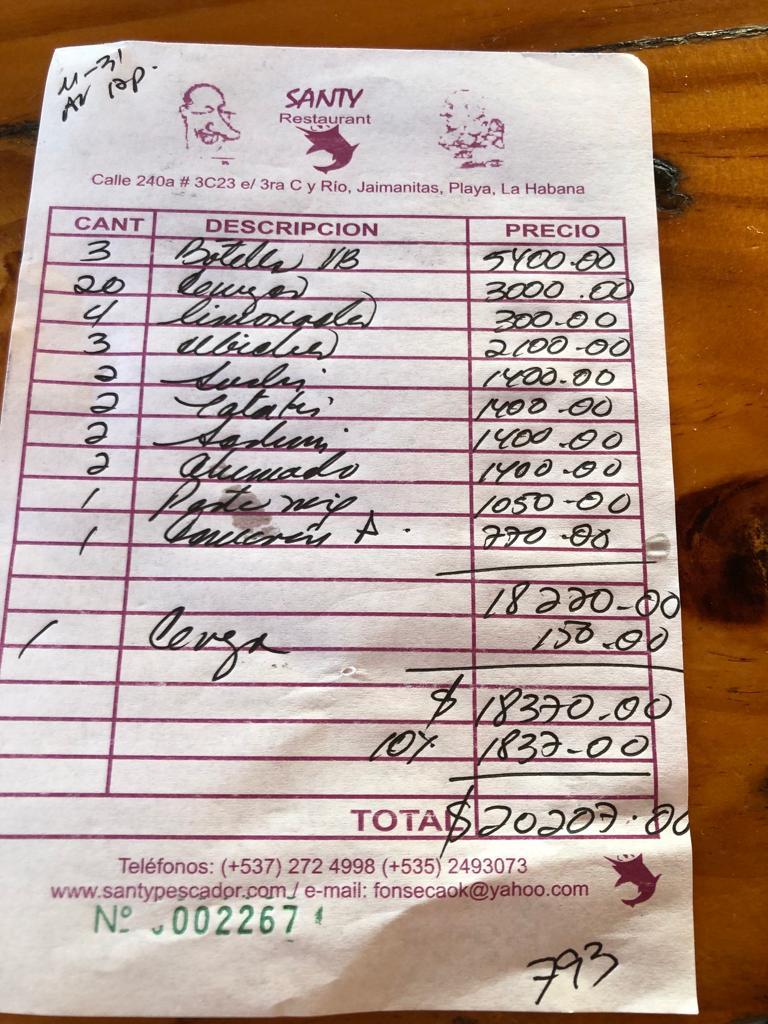 M-31
SANTY
Restaurant
Calle 240a # 3C23 e/ 3ra C y Río, Jaimanitas, Playa, La Habana
CANT DESCRIPCION PRECIO
3 Botellas VB 5400.00
20 Cervezas 3000.00
4 limonadas 300.00
3 2100-00
2 Sushi 1400.00
2 Tatakis 1400.00
2 Sashimi 1400-00
2 Ahumado 1400-00
1 mix 1050-00
1 A. 770.00
18220-00
1 Cerveza 150.00
$ 18370.00
10% 1837-00
TOTAL $20207.00
Teléfonos: (+537) 272 4998 (+535) 2493073
www.santypescador.com / e-mail: fonsecaok@yahoo.com
Nº 002267
793